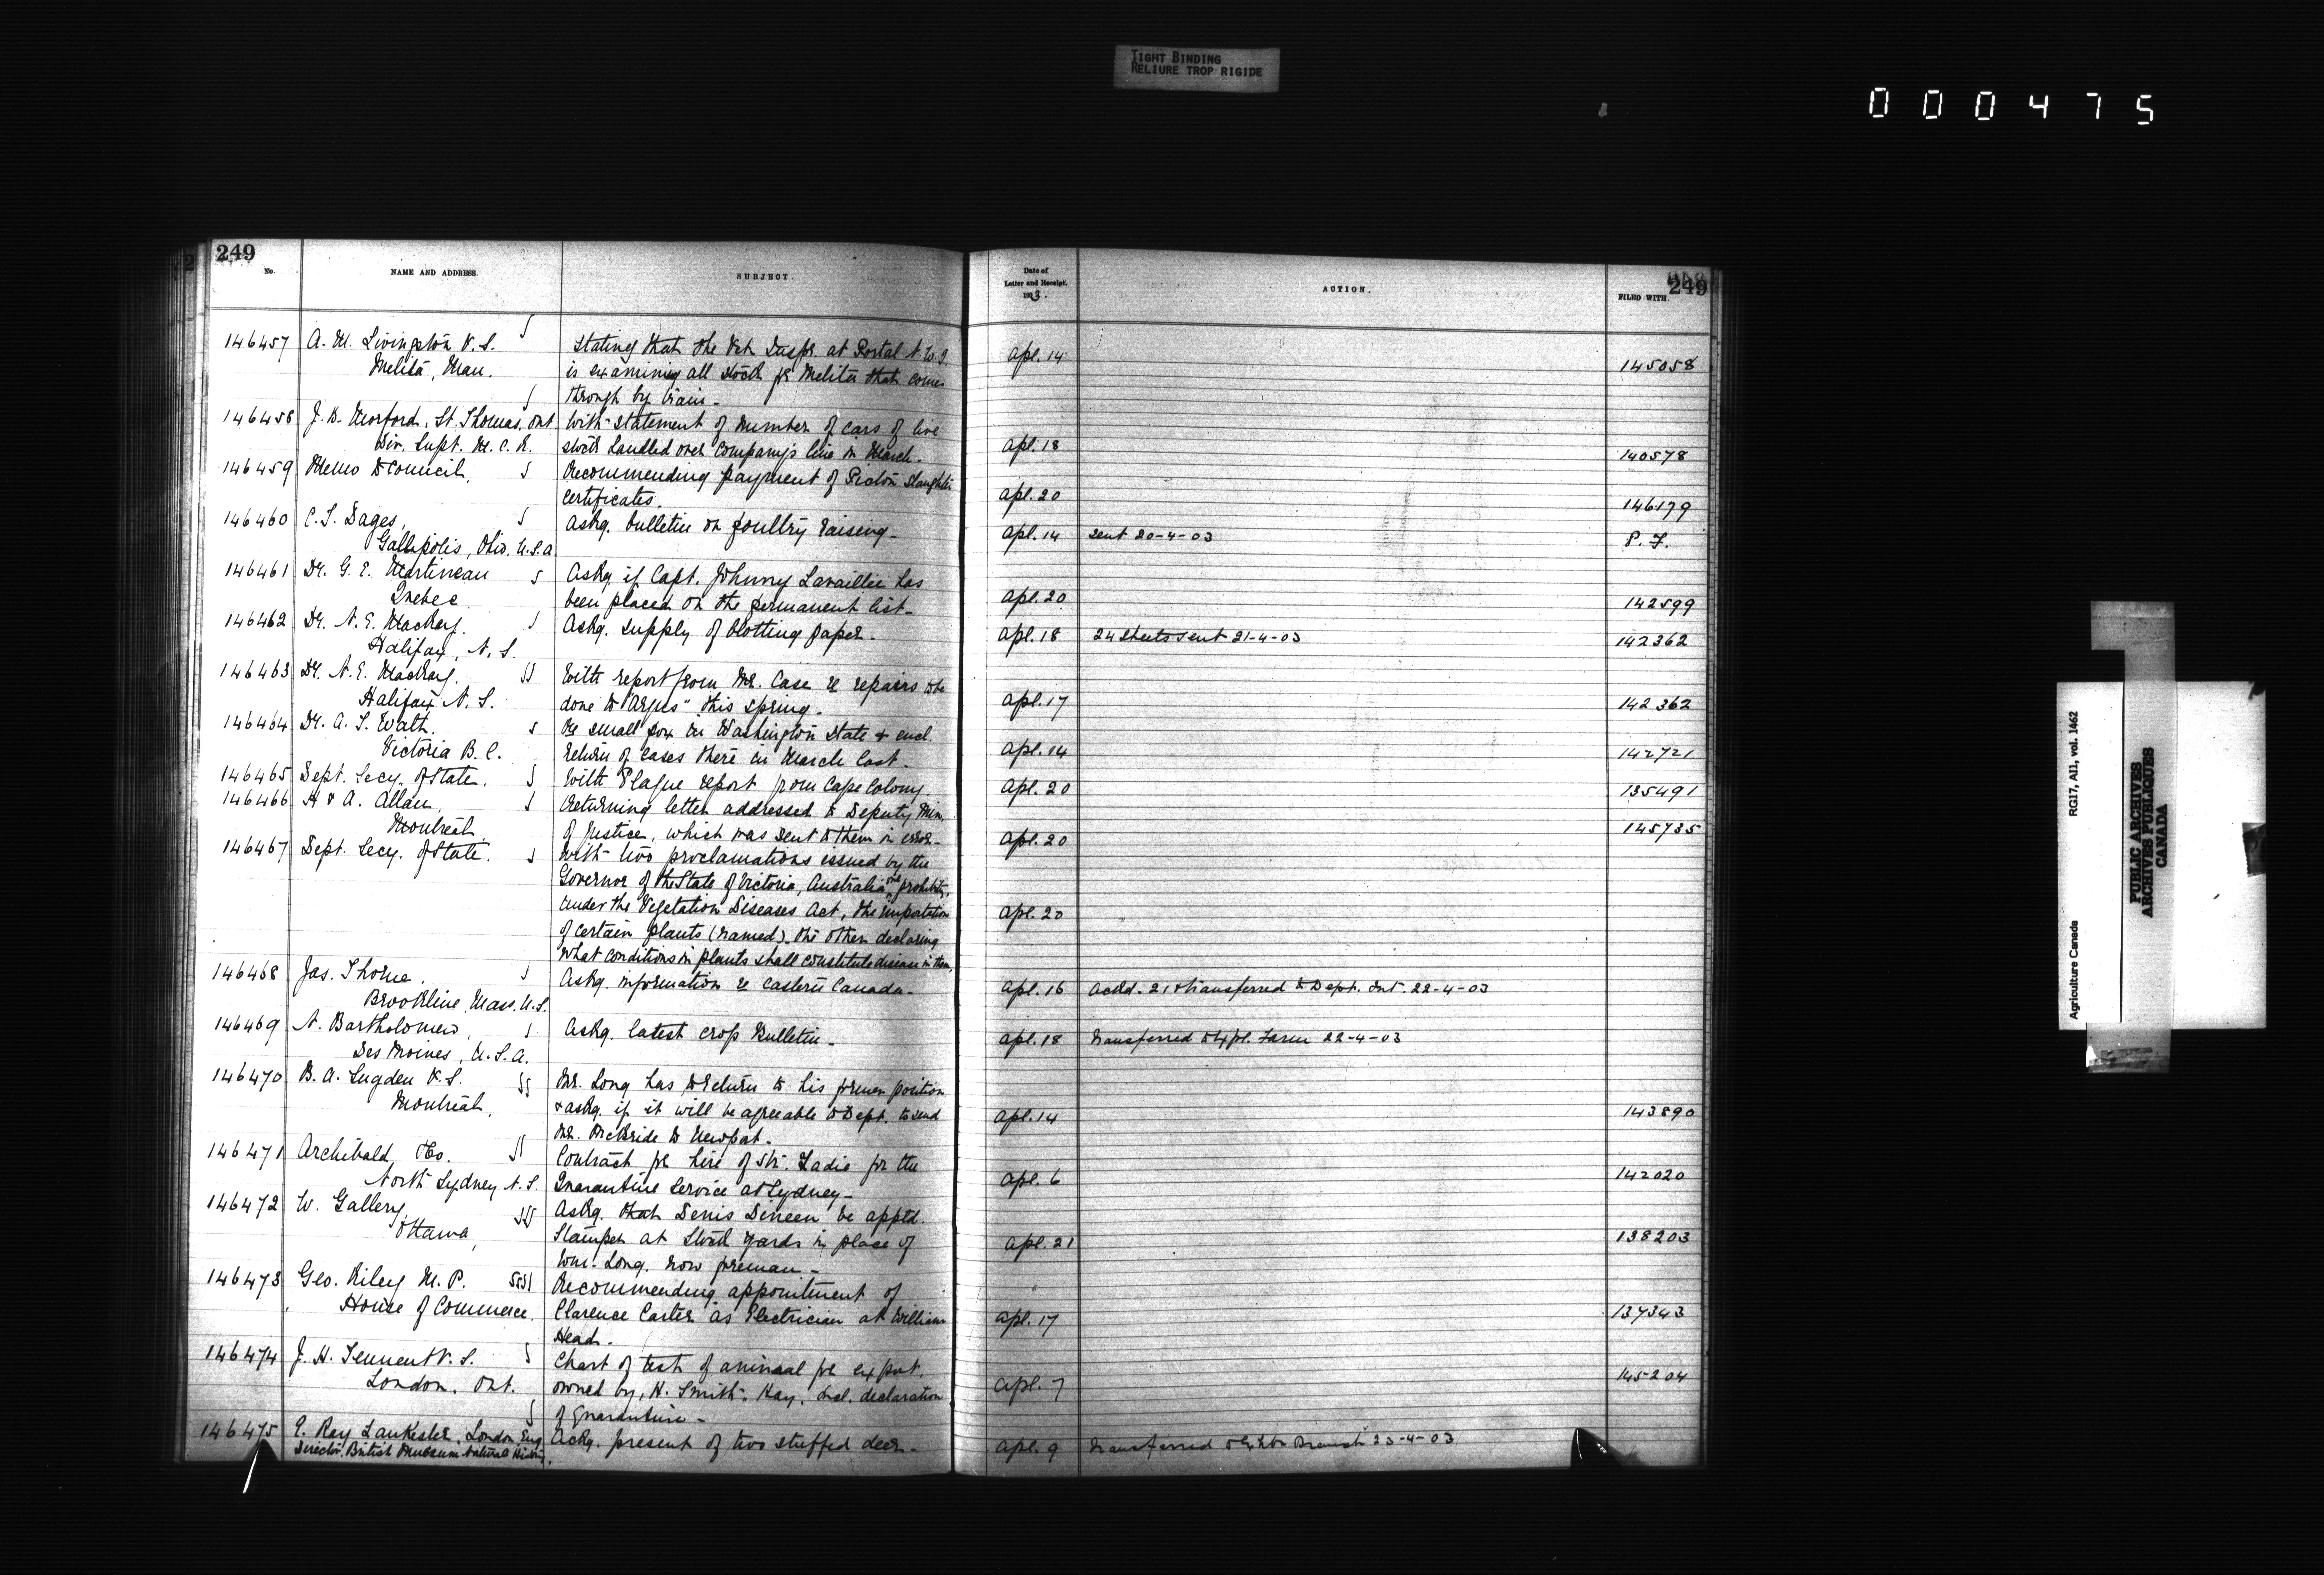 TIGHT BINDING
RELIURE TROP RIGIDE
000475
249
No.
NAME AND ADDRESS.
SUBJECT.
146457 A. M. Livingston V. S. Stating that the Vet Inspr. at Portal N.W.T
Melita, Man. is examining all stock for Melita that comes
through by train -
146458 J. B. Morford, St. Thomas, Ont With statement of number of cars of live
Div. Supt. M. C. R. stock handled over Company's line in March.
146459 Memo to Council. Recommending payment of Picton Slaughter
Certificates.
146460 C. S. Dages, Askg. bulletin on poultry raising -
Gallipolis, Ohio. U.S.A
146461 Dr. G. E. Martineau Askg if Capt. Johnny Lavaillie has
Quebec. been placed on the permanent list -
146462 Dr. N. E. MacKay. Askg. supply of blotting paper -
Halifax, N. S.
146463 Dr. N. E. MacKay. With report from Mr. Case re repairs to be
Halifax N. S. done to "Argus" this spring -
146464 Dr. A. T. Watt. Re small pox in Washington State & encl.
Victoria B. C. return of cases there in March last.
146465 Dept. Secy. of State. With Plague report from Cape Colony.
146466 H & A. Allan. Returning letter addressed to Deputy Min.
Montreal. of Justice, which was sent to them in error -
146467 Dept. Secy. of State. With two proclamations issued by the
Governor of the State of Victoria, Australia, one prohibitg.
under the Vegetation Diseases Act, the importation
of certain plants (named) - the other declaring
what conditions in plants shall constitute disease in them.
146468 Jas. Thorne. Askg. information re Eastern Canada -
Brookline, Mass. U.S.
146469 N. Bartholomew, Askg. latest crop Bulletin -
Des Moines, U.S.A.
146470 B. A. Sugden V. S. Mr. Long has to return to his former position
Montreal. & askg. if it will be agreeable to Dept. to send
Mr. McBride to Newport -
146471 Archibald, & Co. Contract for hire of Str. Ladie for the
North Sydney N. S. Quarantine Service at Sydney -
146472 W. Gallery, Askg. that Denis Dineen be apptd.
Ottawa, Stamper at Stock yards in place of
Wm. Long. now foreman -
146473 Geo. Riley M. P. Recommending appointment of
House of Commerce. Clarence Carter as Electrician at William
Head.
146474 J. H. Tennent V. S. Chart of test of animal for export,
London. Ont. owned by, H. Smith. Hay. Incl. declaration
of Quarantine -
146475 E. Ray Lankester, London, Eng Ackg. present of two stuffed deer -
Director, British Museum Natural History.
Date of
Letter and Receipt.
1903.
ACTION.
FILED WITH.
249
Apl. 14 145058
Apl. 18 140578
Apl. 20 146179
Apl. 14 sent 20-4-03 P. F.
Apl. 20 142599
Apl. 18 24 sheets sent 21-4-03 142362
Apl. 17 142362
Apl. 14 142721
Apl. 20 135491
145735
Apl. 20
Apl. 20
Apl. 16 Ackd. 21 & transferred to Dept. Int. 22-4-03
Apl. 18 Transferred to Expl. Farm 22-4-03
Apl. 14 143890
Apl. 6 142020
Apl. 21 138203
Apl. 17 137343
Apl. 7 145204
Apl. 9 Transferred to Exbn Branch 23-4-03
Agriculture Canada RG17, AII, vol. 1462
PUBLIC ARCHIVES
ARCHIVES PUBLIQUES
CANADA